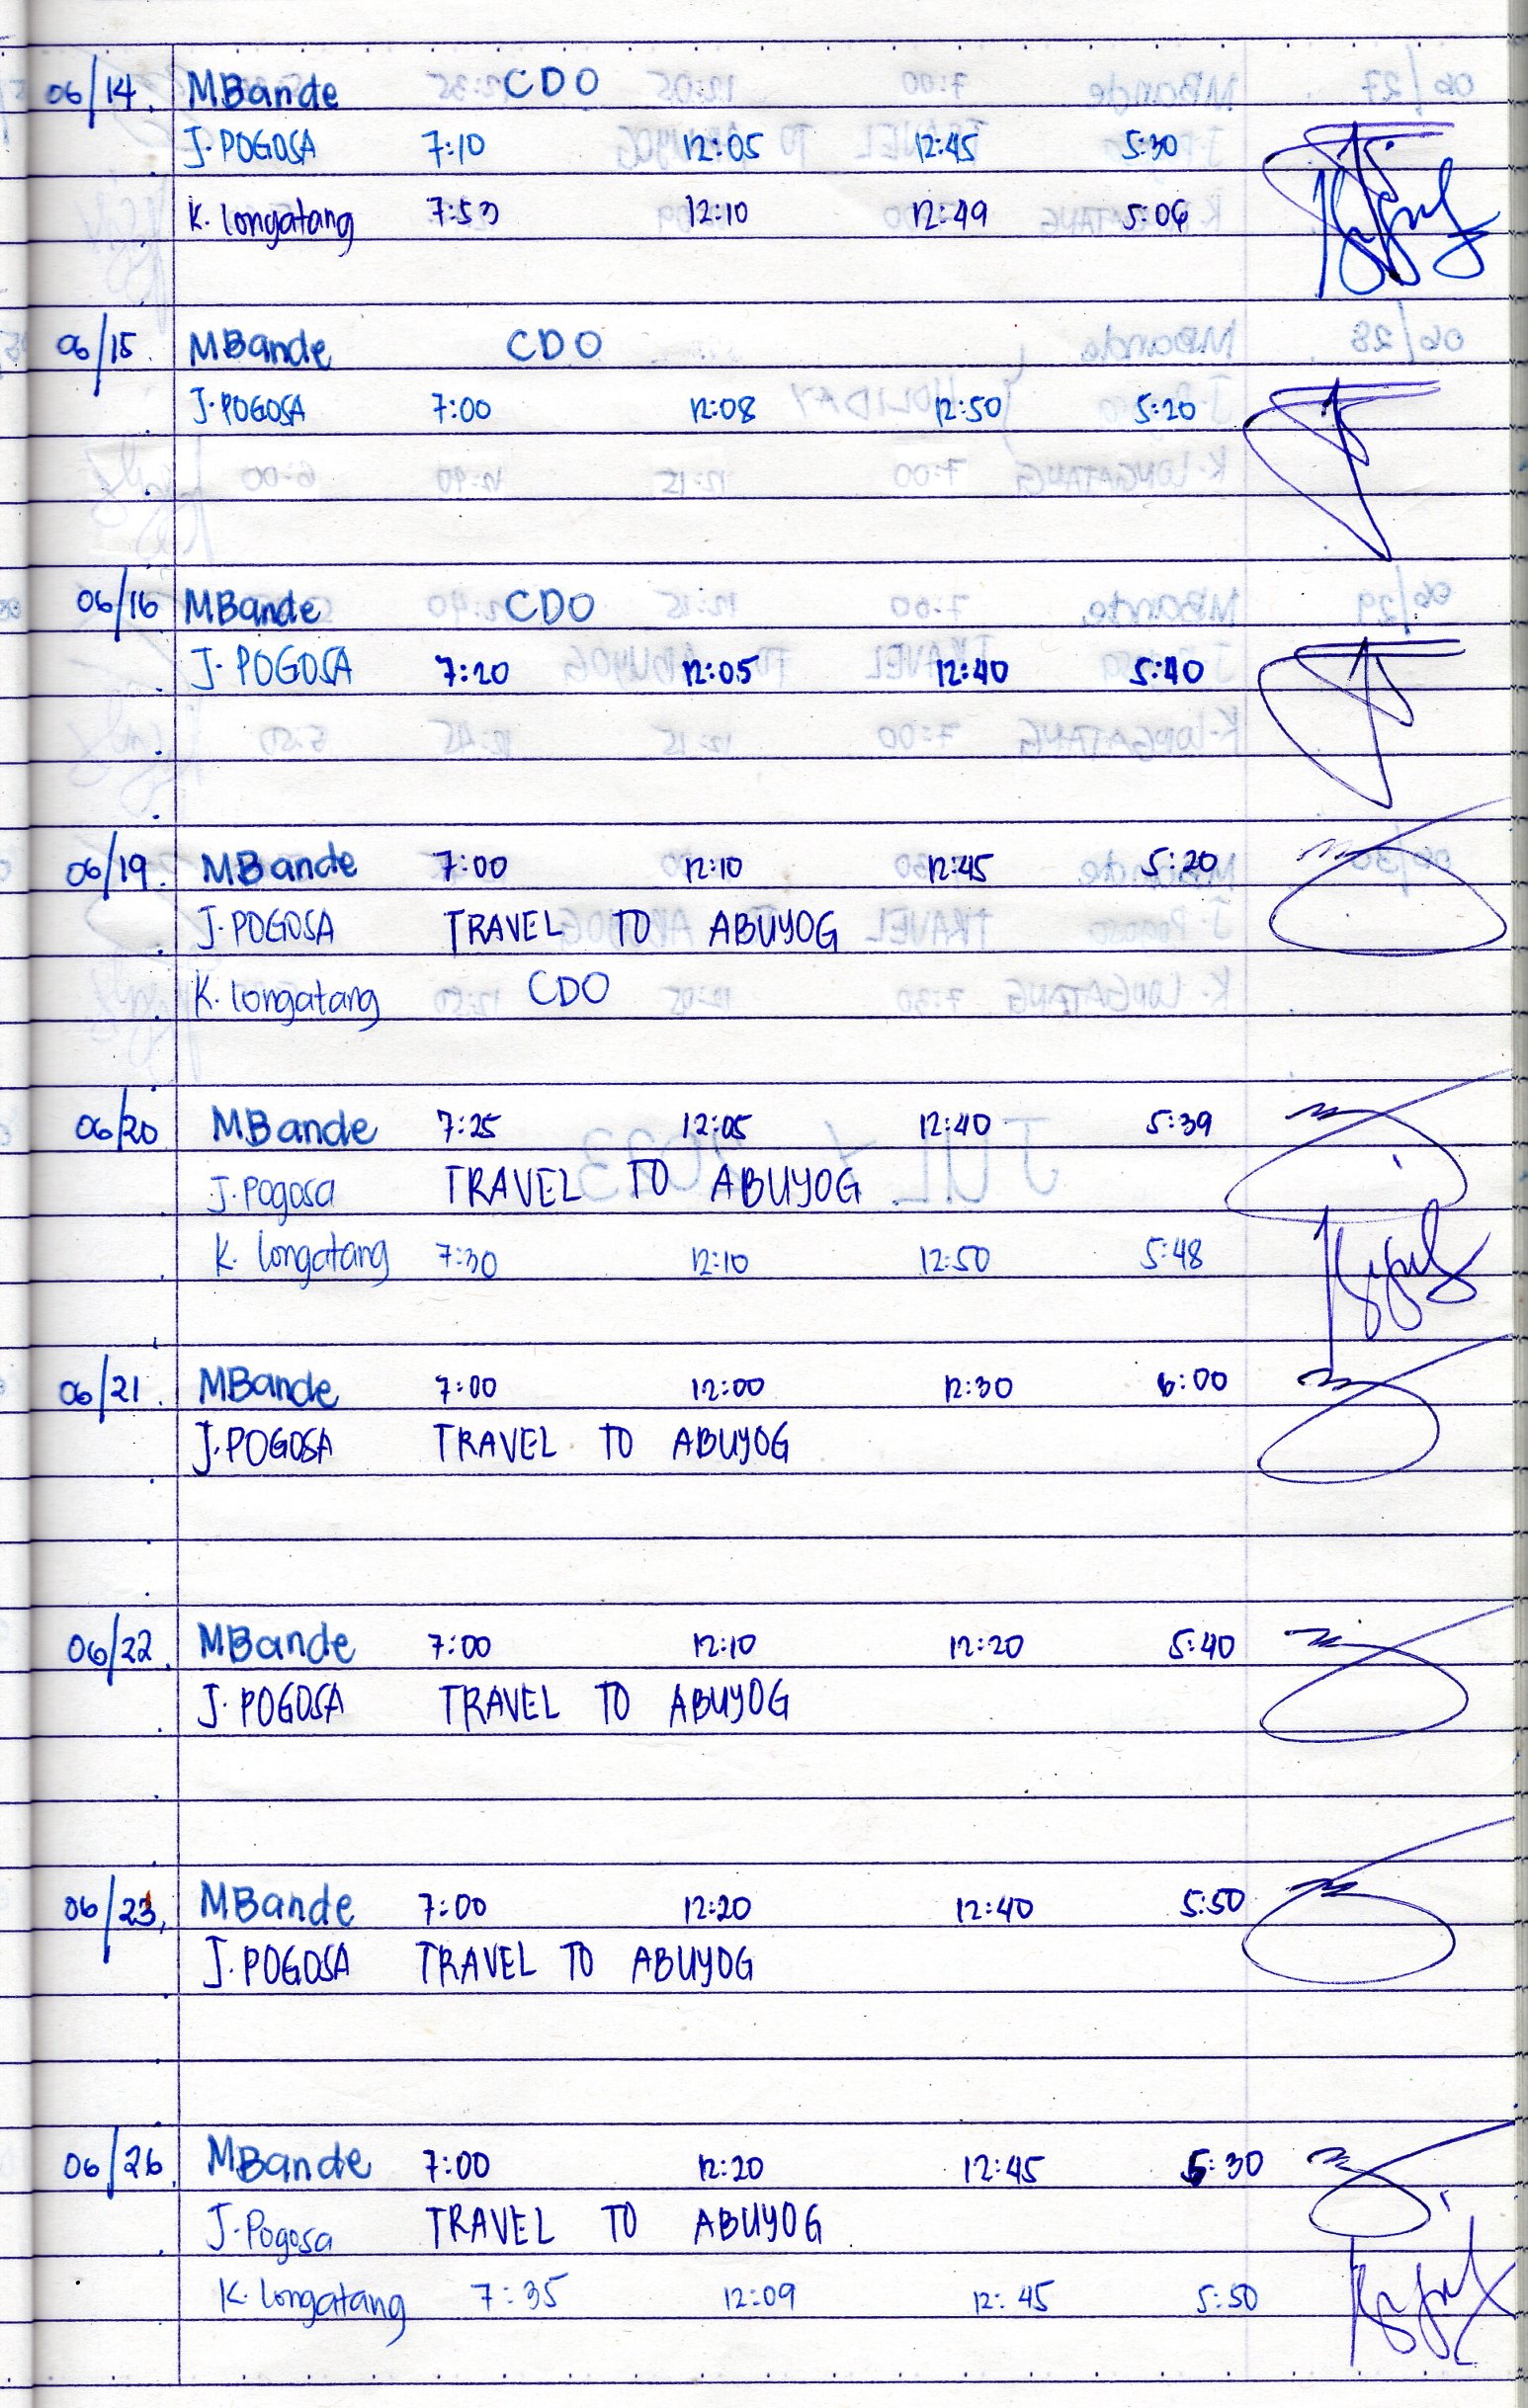 06/14 MBande CDO
J. POGOSA 7:10 12:05 12:45 5:30
K. Longatang 7:53 12:10 12:49 5:06
06/15 MBande CDO
J. POGOSA 7:00 12:08 12:50 5:20
06/16 MBande CDO
J. POGOSA 7:20 12:05 12:40 5:40
06/19 MBande 7:00 12:10 12:45 5:20
J. POGOSA TRAVEL TO ABUYOG
K. Longatang CDO
06/20 MBande 7:25 12:05 12:40 5:39
J. Pogosa TRAVEL TO ABUYOG
K. Longatang 7:30 12:10 12:50 5:48
06/21 MBande 7:00 12:00 12:30 6:00
J. POGOSA TRAVEL TO ABUYOG
06/22 MBande 7:00 12:10 12:20 5:40
J. POGOSA TRAVEL TO ABUYOG
06/23 MBande 7:00 12:20 12:40 5:50
J. POGOSA TRAVEL TO ABUYOG
06/26 MBande 7:00 12:20 12:45 5:30
J. Pogosa TRAVEL TO ABUYOG
K. Longatang 7:35 12:09 12:45 5:50